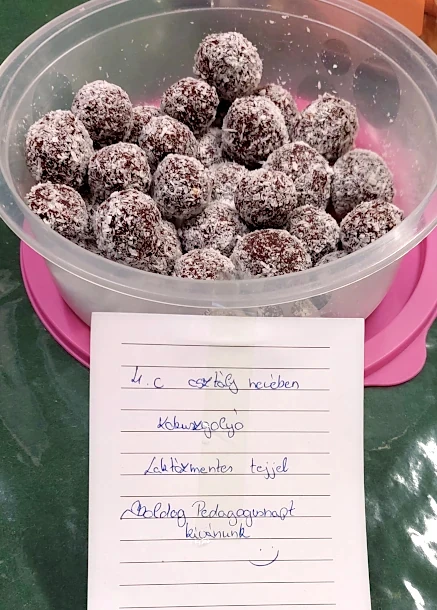 4. c osztály nevében
Kókuszgolyó
Laktózmentes tejjel
Boldog Pedagógusnapt
kívánunk